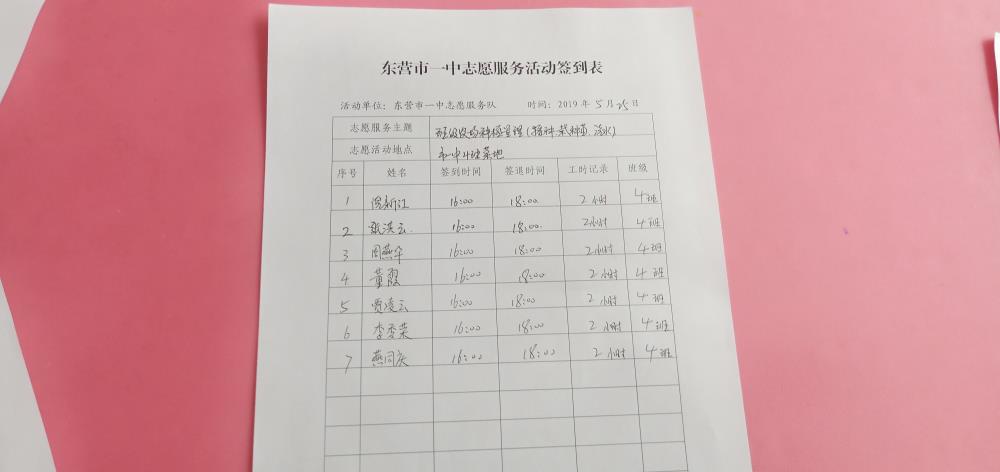 东营市一中志愿服务活动签到表
活动单位：东营市一中志愿服务队 时间：2019 年 5 月 25 日
志愿服务主题 班级农场种植管理（播种.栽种苗.浇水）
志愿活动地点 市一中4班菜地
序号 姓名 签到时间 签退时间 工时记录 班级
1 新江 16:00 18:00 2小时 4班
2 张洪云 16:00 18:00 2小时 4班
3 周燕华 16:00 18:00 2小时 4班
4 董霞 16:00 18:00 2小时 4班
5 贾凌云 16:00 18:00 2小时 4班
6 李秀荣 16:00 18:00 2小时 4班
7 燕同庆 16:00 18:00 2小时 4班